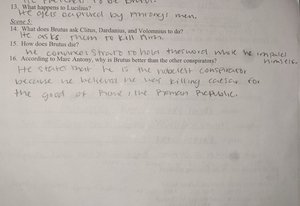 He pretended to be Brutus.
13. What happens to Lucilius?
He gets captured by Antony's men.
Scene 5
14. What does Brutus ask Clitus, Dardanius, and Volumnius to do?
He asks them to kill him.
15. How does Brutus die?
He convinces Strato to hold the sword while he impales himself.
16. According to Marc Antony, why is Brutus better than the other conspirators?
He states that he is the noblest conspirator
because he believed he was killing caesar for
the good of Rome, the Roman Republic.